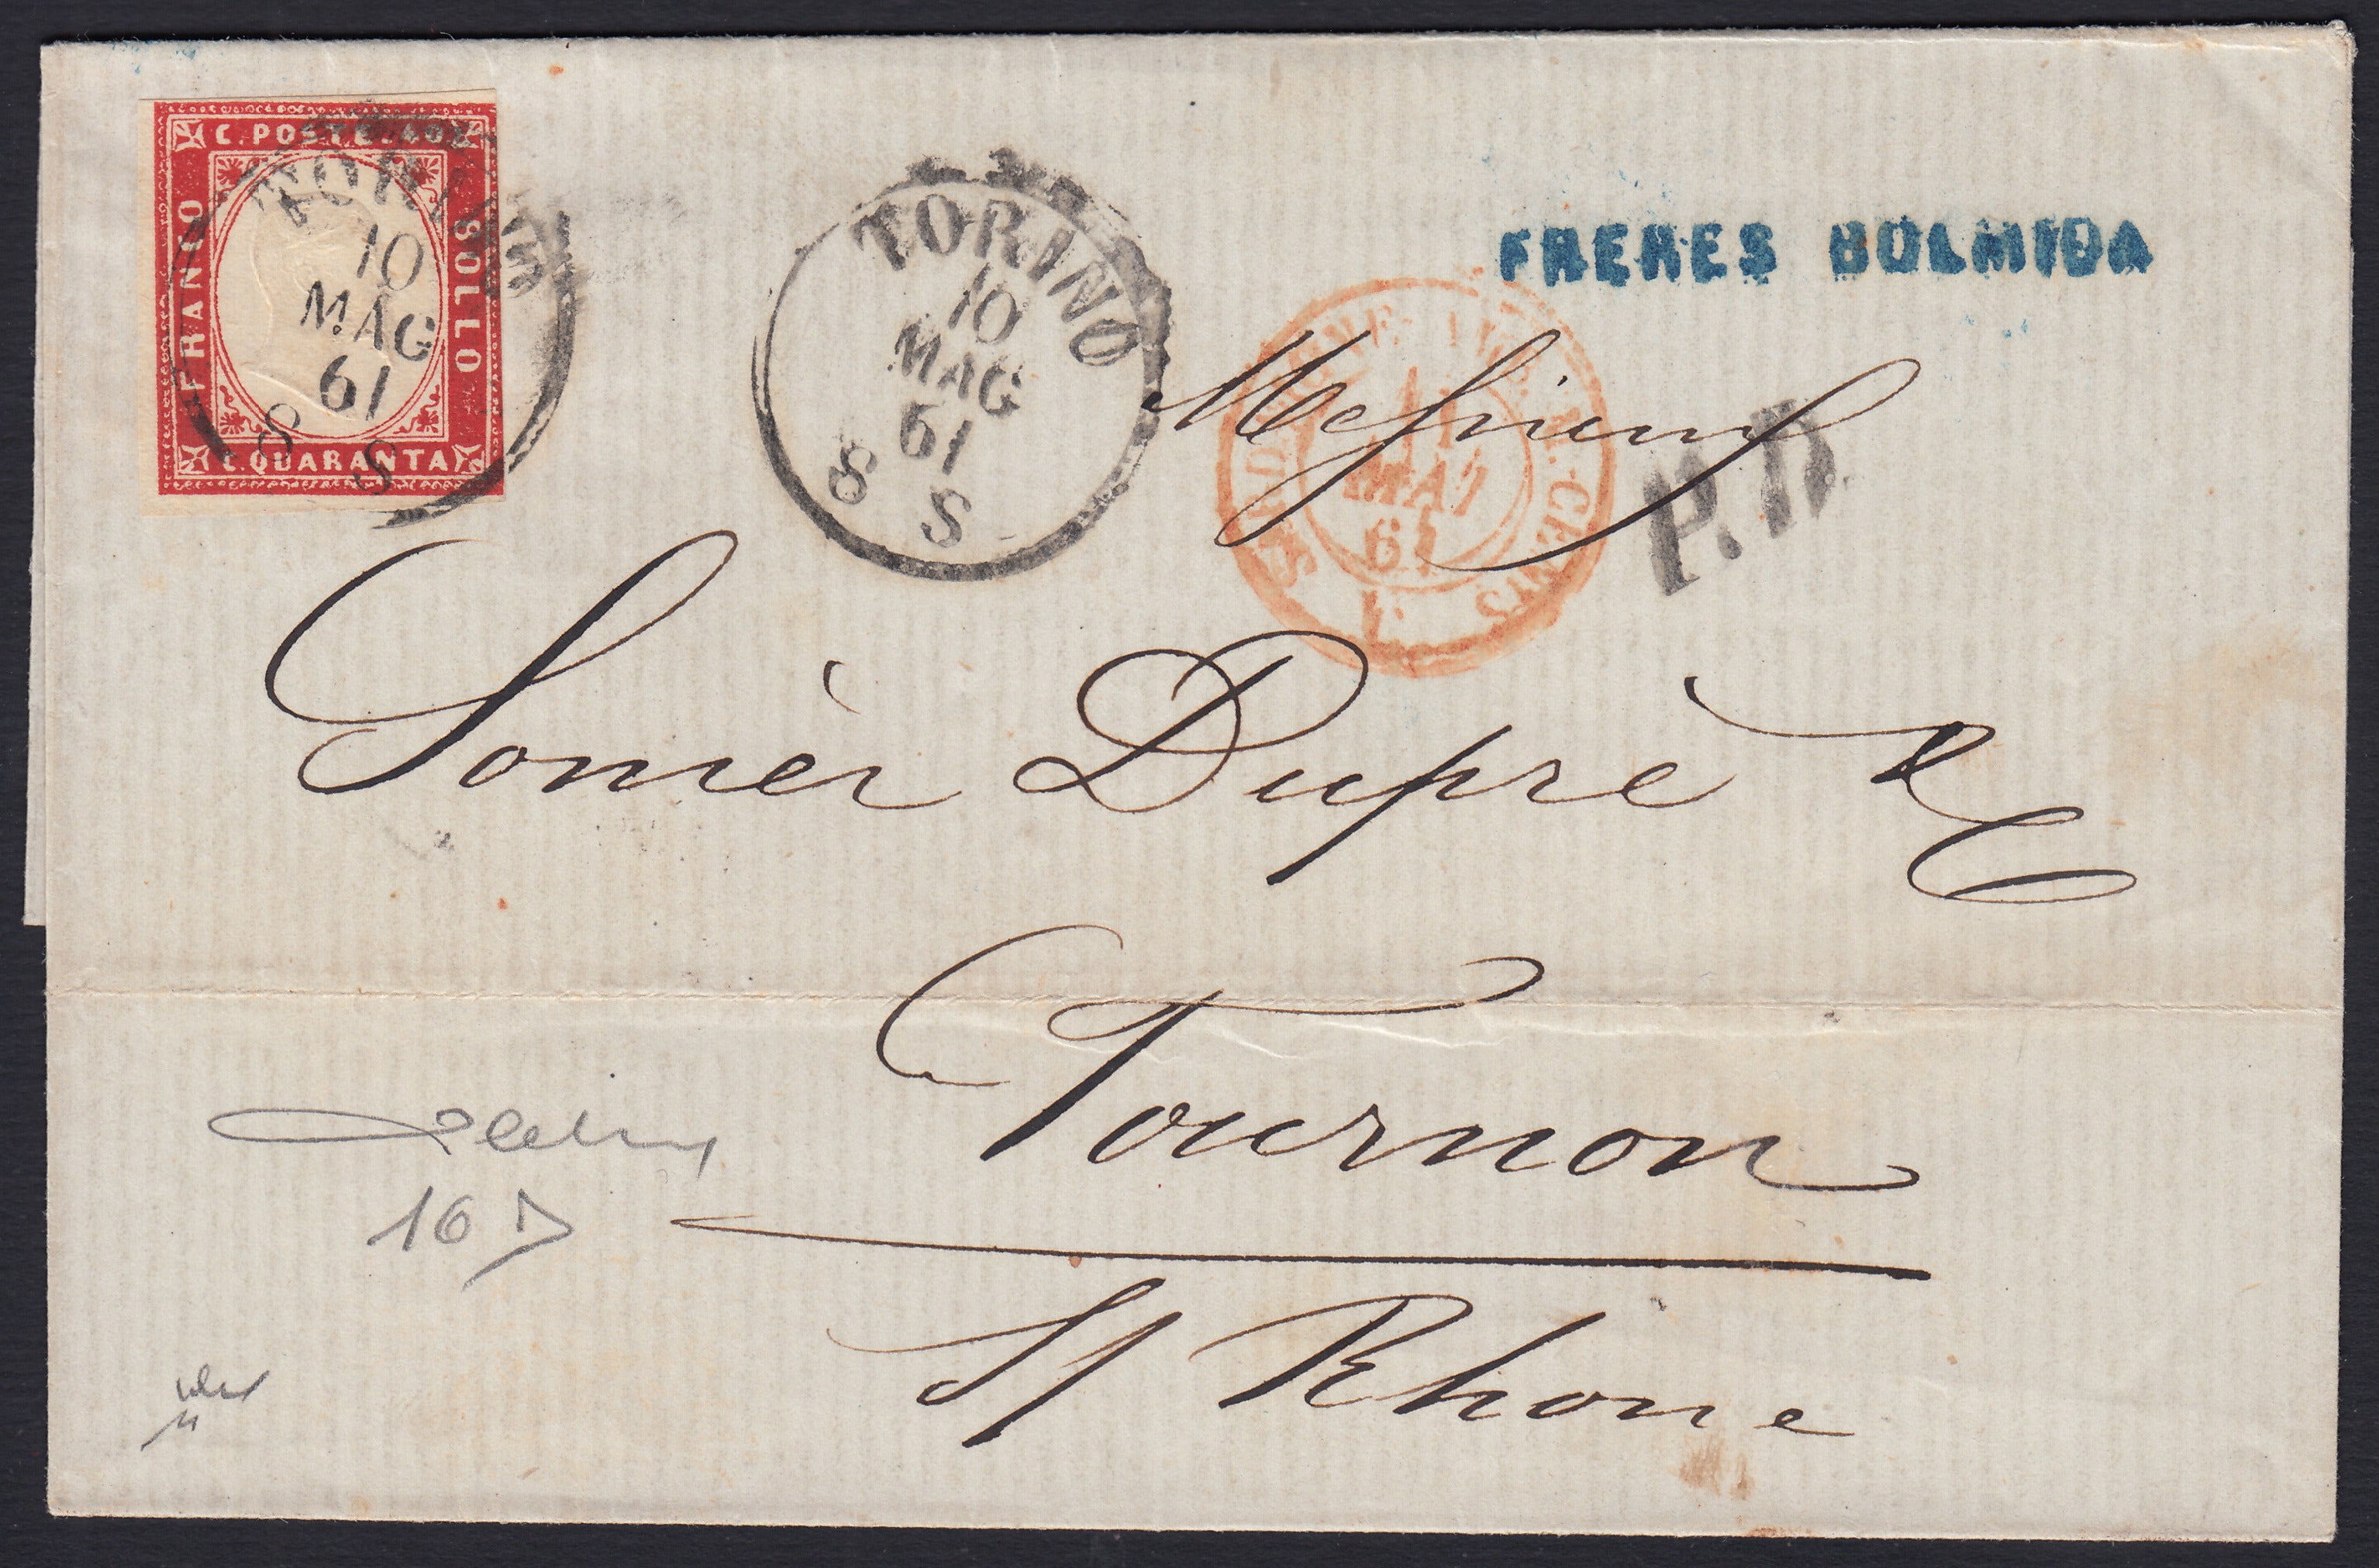 C. POSTE. 40
FRANCO
BOLLO
C. QUARANTA
TORINO
10
MAG
61
8 S
TORINO
10
MAG
61
8 S
FRERES BOLMIDA
11
MAI
61
P.D.
Messieurs
Soniér Dupré & C
Tournon
S/ Rhone
16 D